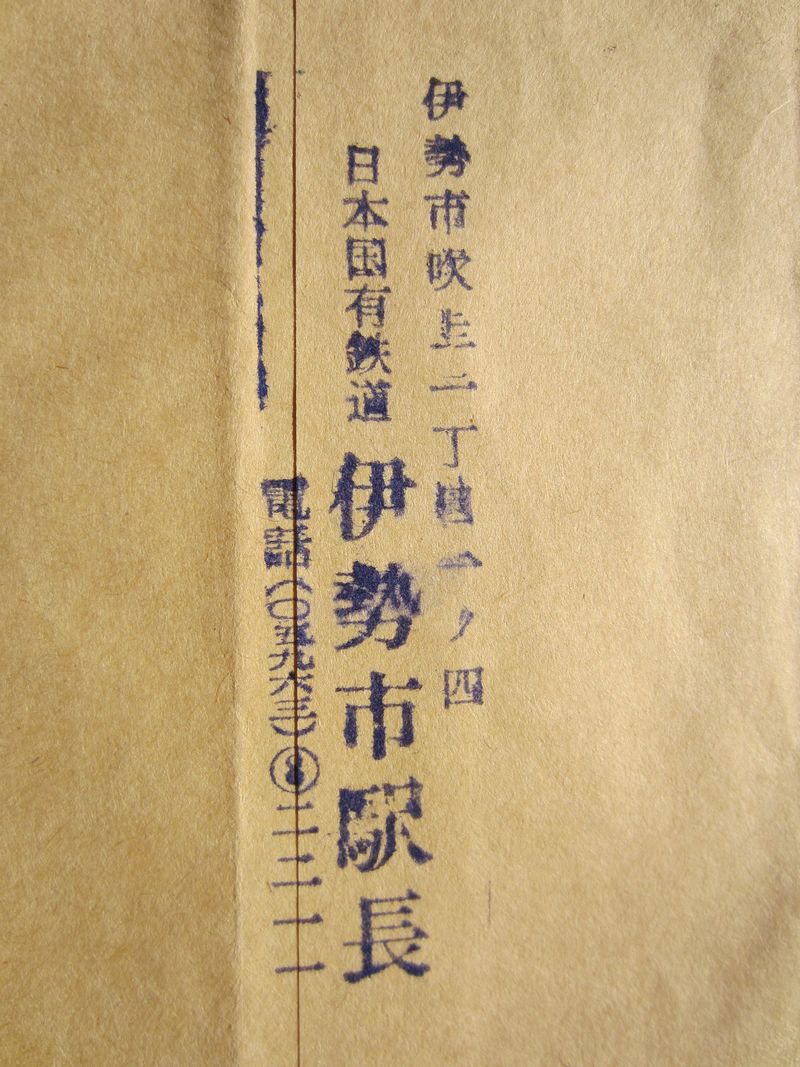 伊勢市吹上二丁目一ノ四
日本国有鉄道 伊勢市駅長
電話(〇五九六三)⑧二二一一